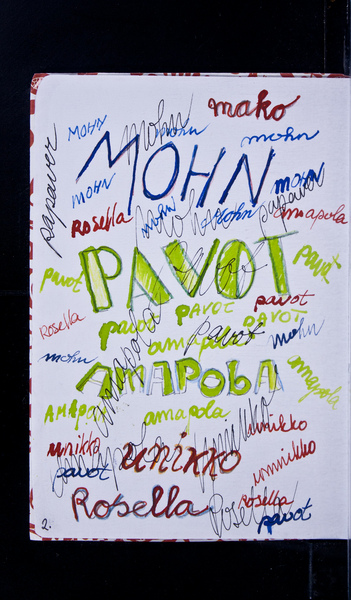 mako
mohn
MOHN
mohn
mohn
papaver
MOHN
MOHN
mohn
papaver
Rosella
mohn
mohn
mohn
amapola
PAVOT
pavot
pavot
pavot
PAVOT
pavot
Rosella
pavot
PAVOT
amapola
pavot
mohn
mohn
amapola
AMAPOLA
amapola
amapola
unikko
unikko
unikko
pavot
unikko
Rosella
Rosella
Rosella
pavot
2.